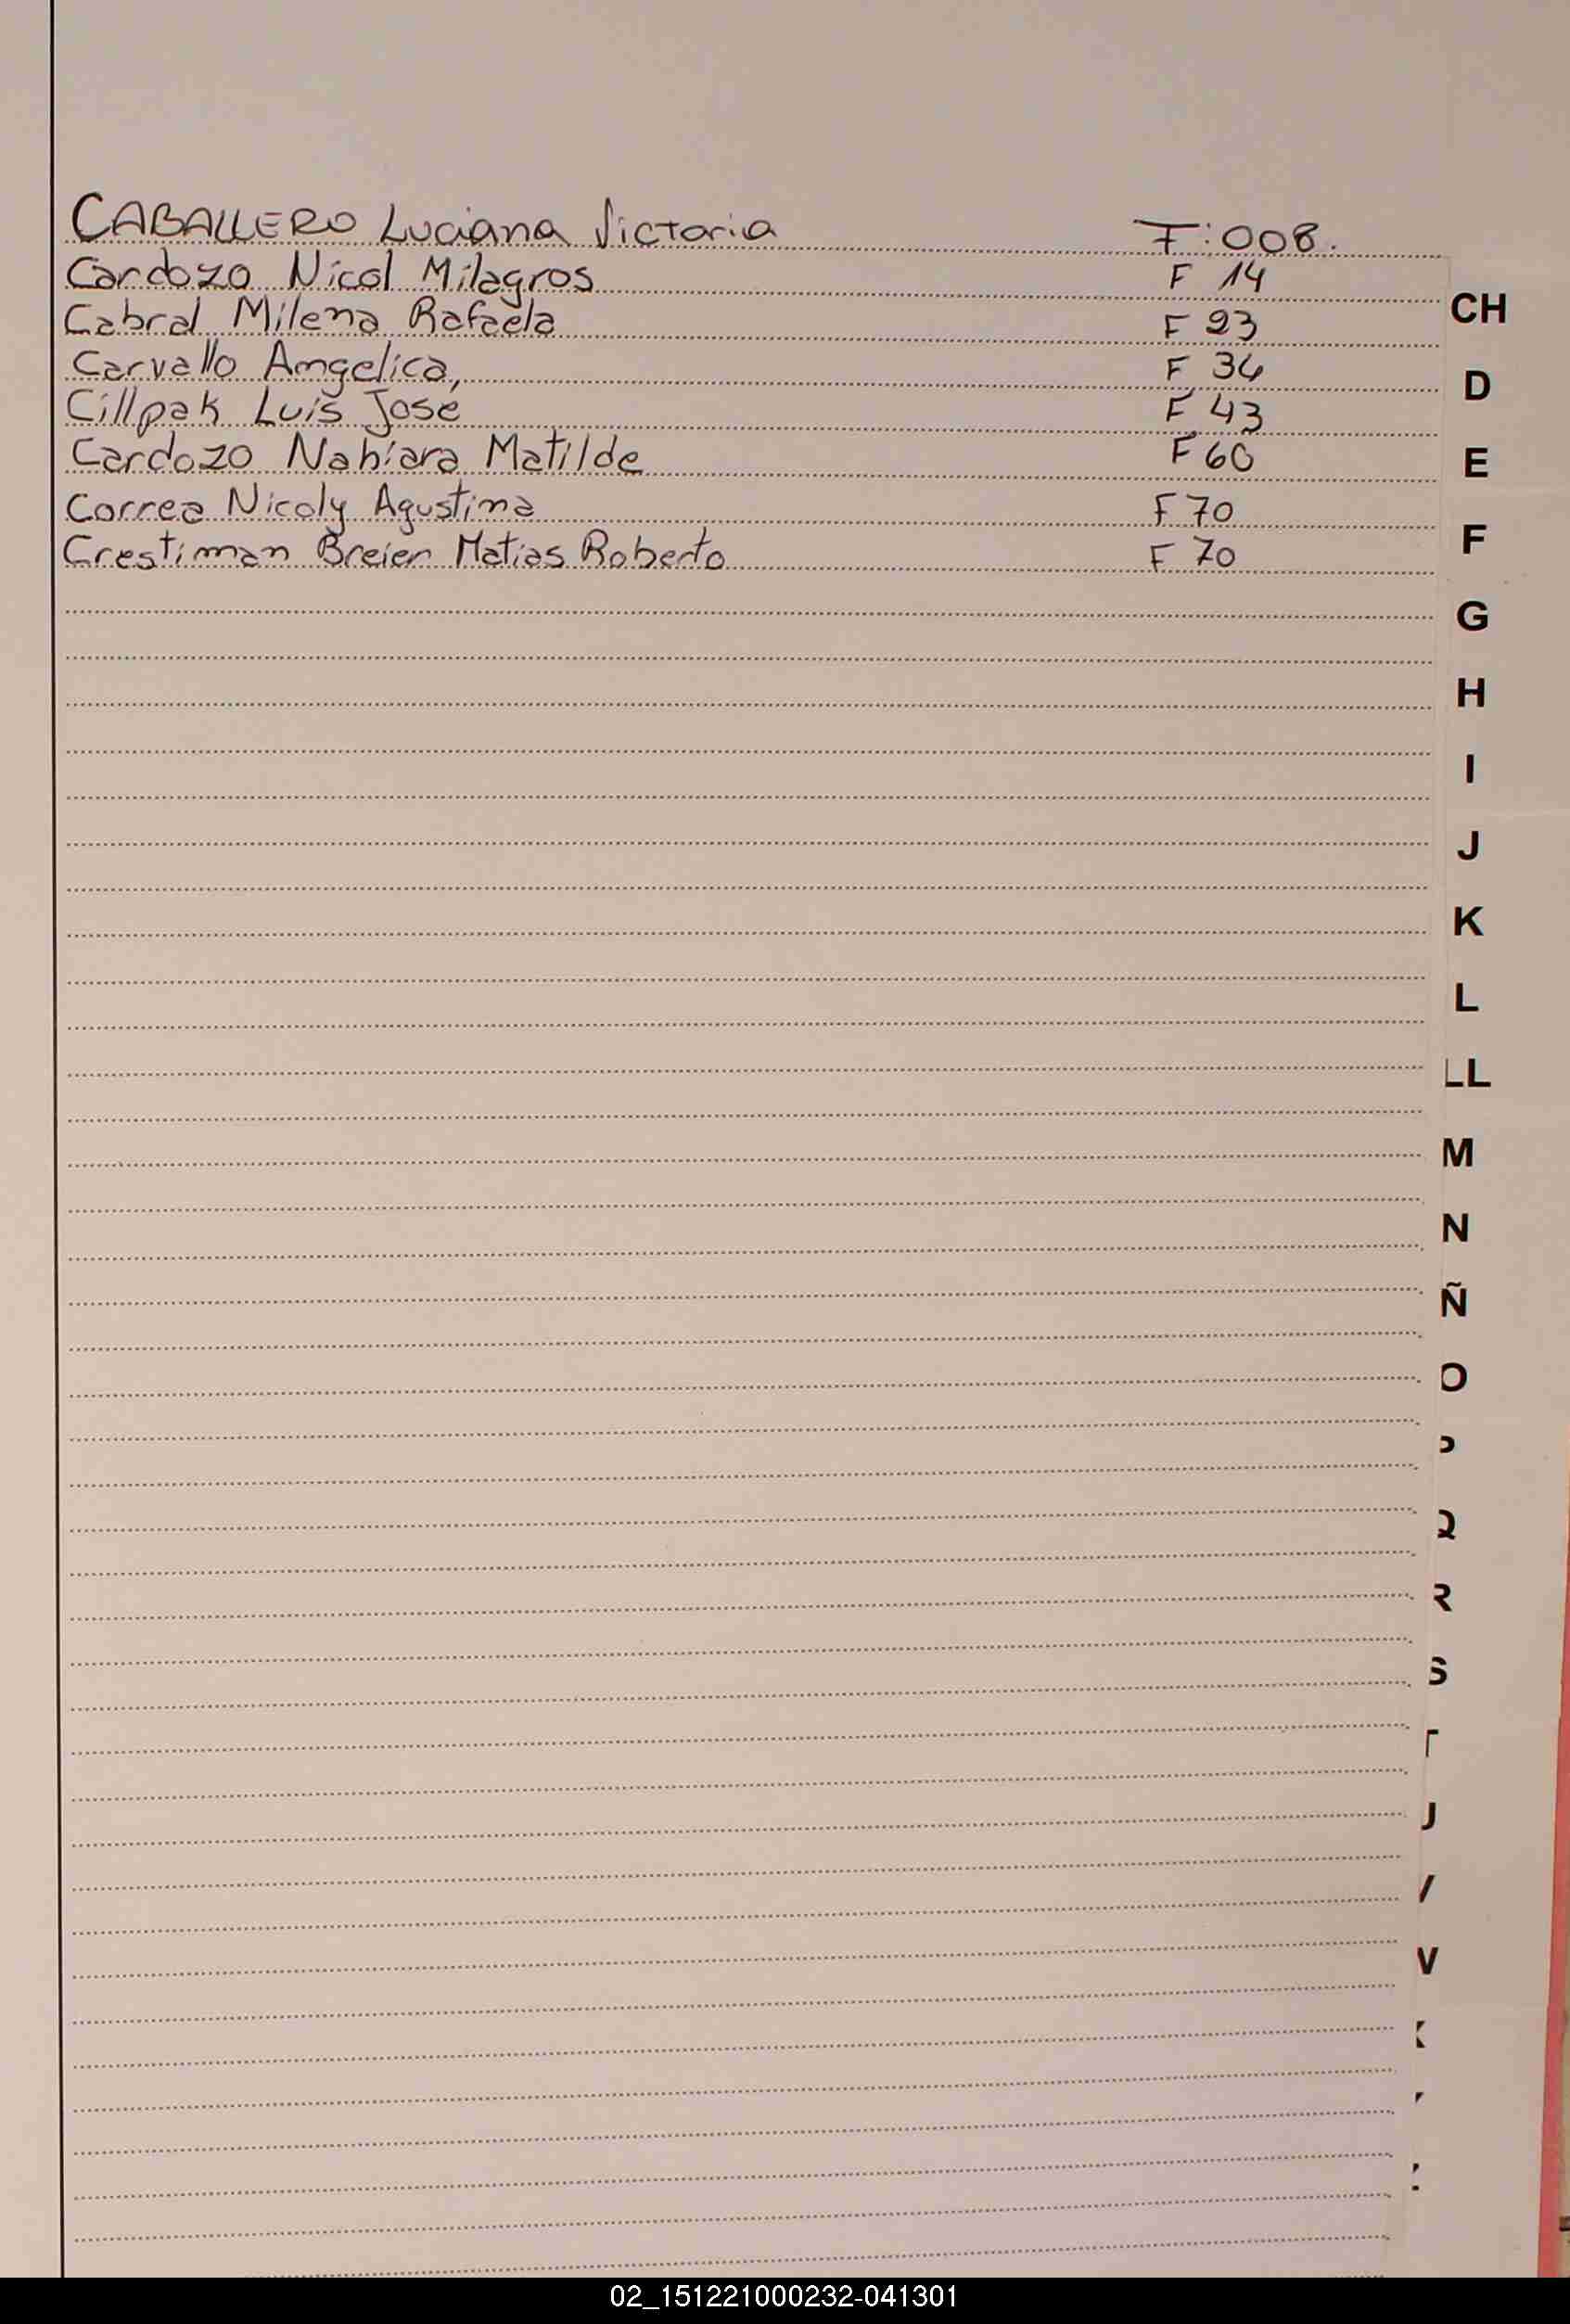 CABALLERO Luciana Victoria F:008.
Cardozo Nicol Milagros F 14
Cabral Milena Rafaela F 23
Carvallo Angelica, F 34
Cillpak Luis José F 43
Cardozo Nahiara Matilde F 60
Correa Nicoly Agustina F 70
Crestiman Breier Matias Roberto F 70
CH
D
E
F
G
H
I
J
K
L
LL
M
N
Ñ
O
P
Q
R
S
T
U
V
W
X
Y
Z
02_151221000232-041301